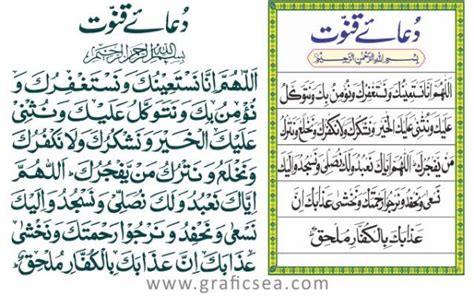 دُعائے قنوت
بِسْمِ اللهِ الرَّحْمٰنِ الرَّحِيْمِ
اَللّٰهُمَّ اِنَّا نَسْتَعِيْنُكَ وَنَسْتَغْفِرُكَ وَ
نُؤْمِنُ بِكَ وَنَتَوَكَّلُ عَلَيْكَ وَنُثْنِىْ
عَلَيْكَ الْخَيْرَ وَنَشْكُرُكَ وَلَا نَكْفُرُكَ
وَنَخْلَعُ وَنَتْرُكُ مَنْ يَّفْجُرُكَ اَللّٰهُمَّ
اِيَّاكَ نَعْبُدُ وَلَكَ نُصَلِّىْ وَنَسْجُدُ وَاِلَيْكَ
نَسْعٰى وَنَحْفِدُ وَنَرْجُوْا رَحْمَتَكَ وَنَخْشٰى
عَذَابَكَ اِنَّ عَذَابَكَ بِالْكُفَّارِ مُلْحِقٌ
دُعائے قنوت
بِسْمِ اللهِ الرَّحْمٰنِ الرَّحِيْمِ
اَللّٰهُمَّ اِنَّا نَسْتَعِيْنُكَ وَنَسْتَغْفِرُكَ وَنُؤْمِنُ بِكَ وَنَتَوَكَّلُ
عَلَيْكَ وَنُثْنِىْ عَلَيْكَ الْخَيْرَ وَنَشْكُرُكَ وَلَا نَكْفُرُكَ وَنَخْلَعُ وَنَتْرُكُ
مَنْ يَّفْجُرُكَ اَللّٰهُمَّ اِيَّاكَ نَعْبُدُ وَلَكَ نُصَلِّىْ وَنَسْجُدُ وَاِلَيْكَ
نَسْعٰى وَنَحْفِدُ وَنَرْجُوْا رَحْمَتَكَ وَنَخْشٰى عَذَابَكَ اِنَّ
عَذَابَكَ بِالْكُفَّارِ مُلْحِقٌ
www.graficsea.com